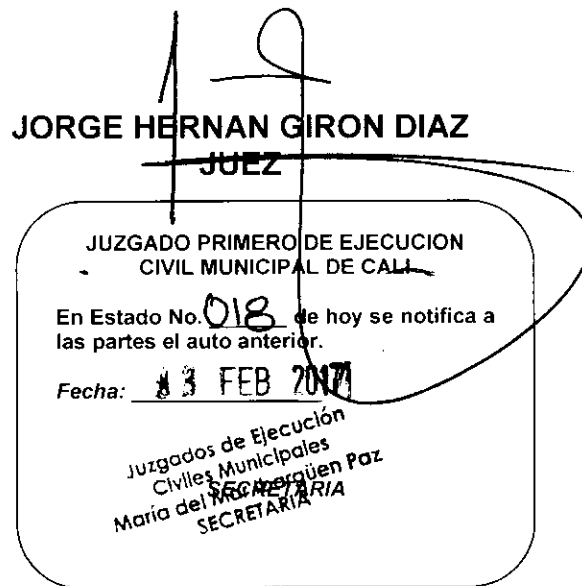 JORGE HERNAN GIRON DIAZ
JUEZ
JUZGADO PRIMERO DE EJECUCION
CIVIL MUNICIPAL DE CALI
En Estado No. 018 de hoy se notifica a
las partes el auto anterior.
Fecha: 3 FEB 2017
Juzgados de Ejecución
Civiles Municipales
María del Mar Ibargüen Paz
SECRETARIA
SECRETARIA